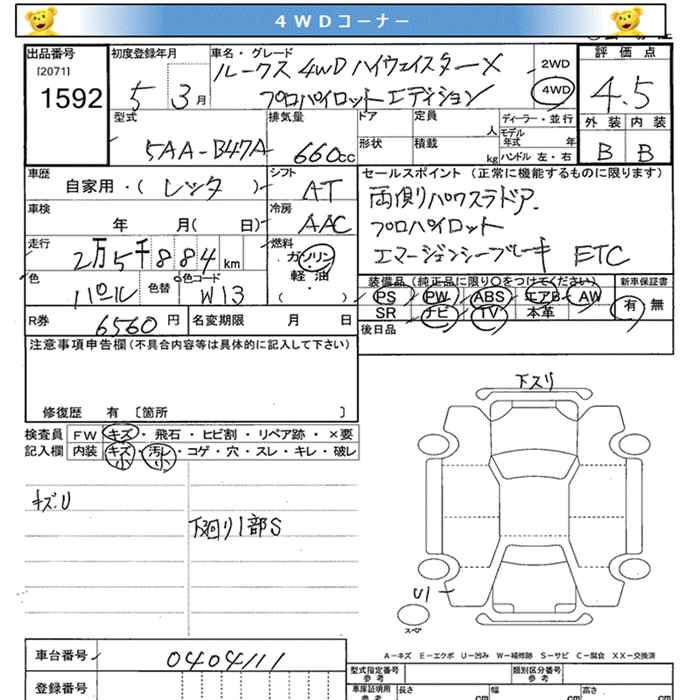 4WDコーナー
出品番号
[2071]
1592
初度登録年月
5 3月
車名・グレード
ルークス 4WD ハイウェイスターX
プロパイロットエディション
2WD
4WD
評価点
4.5
外装 内装
B B
型式
5AA-B47A
排気量
660cc
ドア
定員
人
形状
積載
kg
ディーラー・並行
モデル年式 年
ハンドル 左・右
車歴
自家用・(レンタ)
シフト
AT
セールスポイント (正常に機能するものに限ります)
両側パワスラドア.
プロパイロット
エマージェンシーブレーキ ETC
車検
年 月( 日)
冷房
AAC
走行
2万5千884km
燃料
ガソリン
軽油
( )
色
パール
色替
色コード
W13
装備品 (純正品に限り○をつけてください)
PS PW ABS エアB AW
SR ナビ TV 本革
新車保証書
有 無
R券
6560円
名変期限 月 日
後日品
注意事項申告欄(不具合内容等は具体的に記入して下さい)
修復歴 有 〔箇所 〕
検査員
記入欄
FW キズ・飛石・ヒビ割・リペア跡・×要
内装 キズ・汚レ・コゲ・穴・スレ・キレ・破レ
小 小
キズU
下廻り1部S
下スリ
U1
スペア
A-キズ E-エクボ U-凹み W-補修跡 S-サビ C-腐食 XX-交換済
車台番号
0404111
登録番号
型式指定番号
参考
類別区分番号
参考
車庫証明用
参考
長さ
cm
幅
cm
高さ
cm